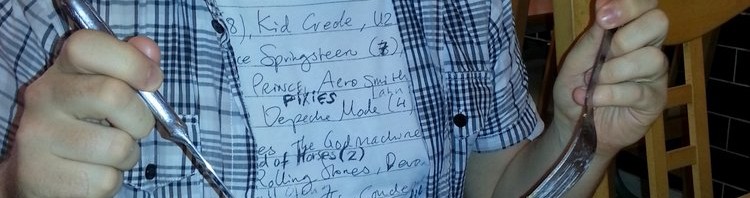 8), Kid Creole, U2
ce Springsteen (7)
Prince, Aerosmith
PIXIES
Depeche Mode (4)
es, The God machine
d of Horses (2)
Rolling Stones, Devo